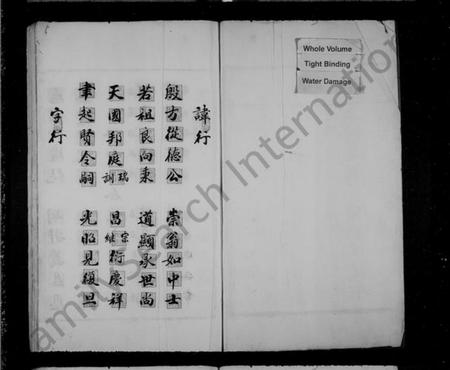 Whole Volume
Tight Binding
Water Damage
諱行
殷方從德公 崇翁如中士
若祖良向秉 道顯承世尚
天國邦庭瑞訓 昌宗繼衍慶祥
聿起賢令嗣 光昭見復旦
字行
FamilySearch International